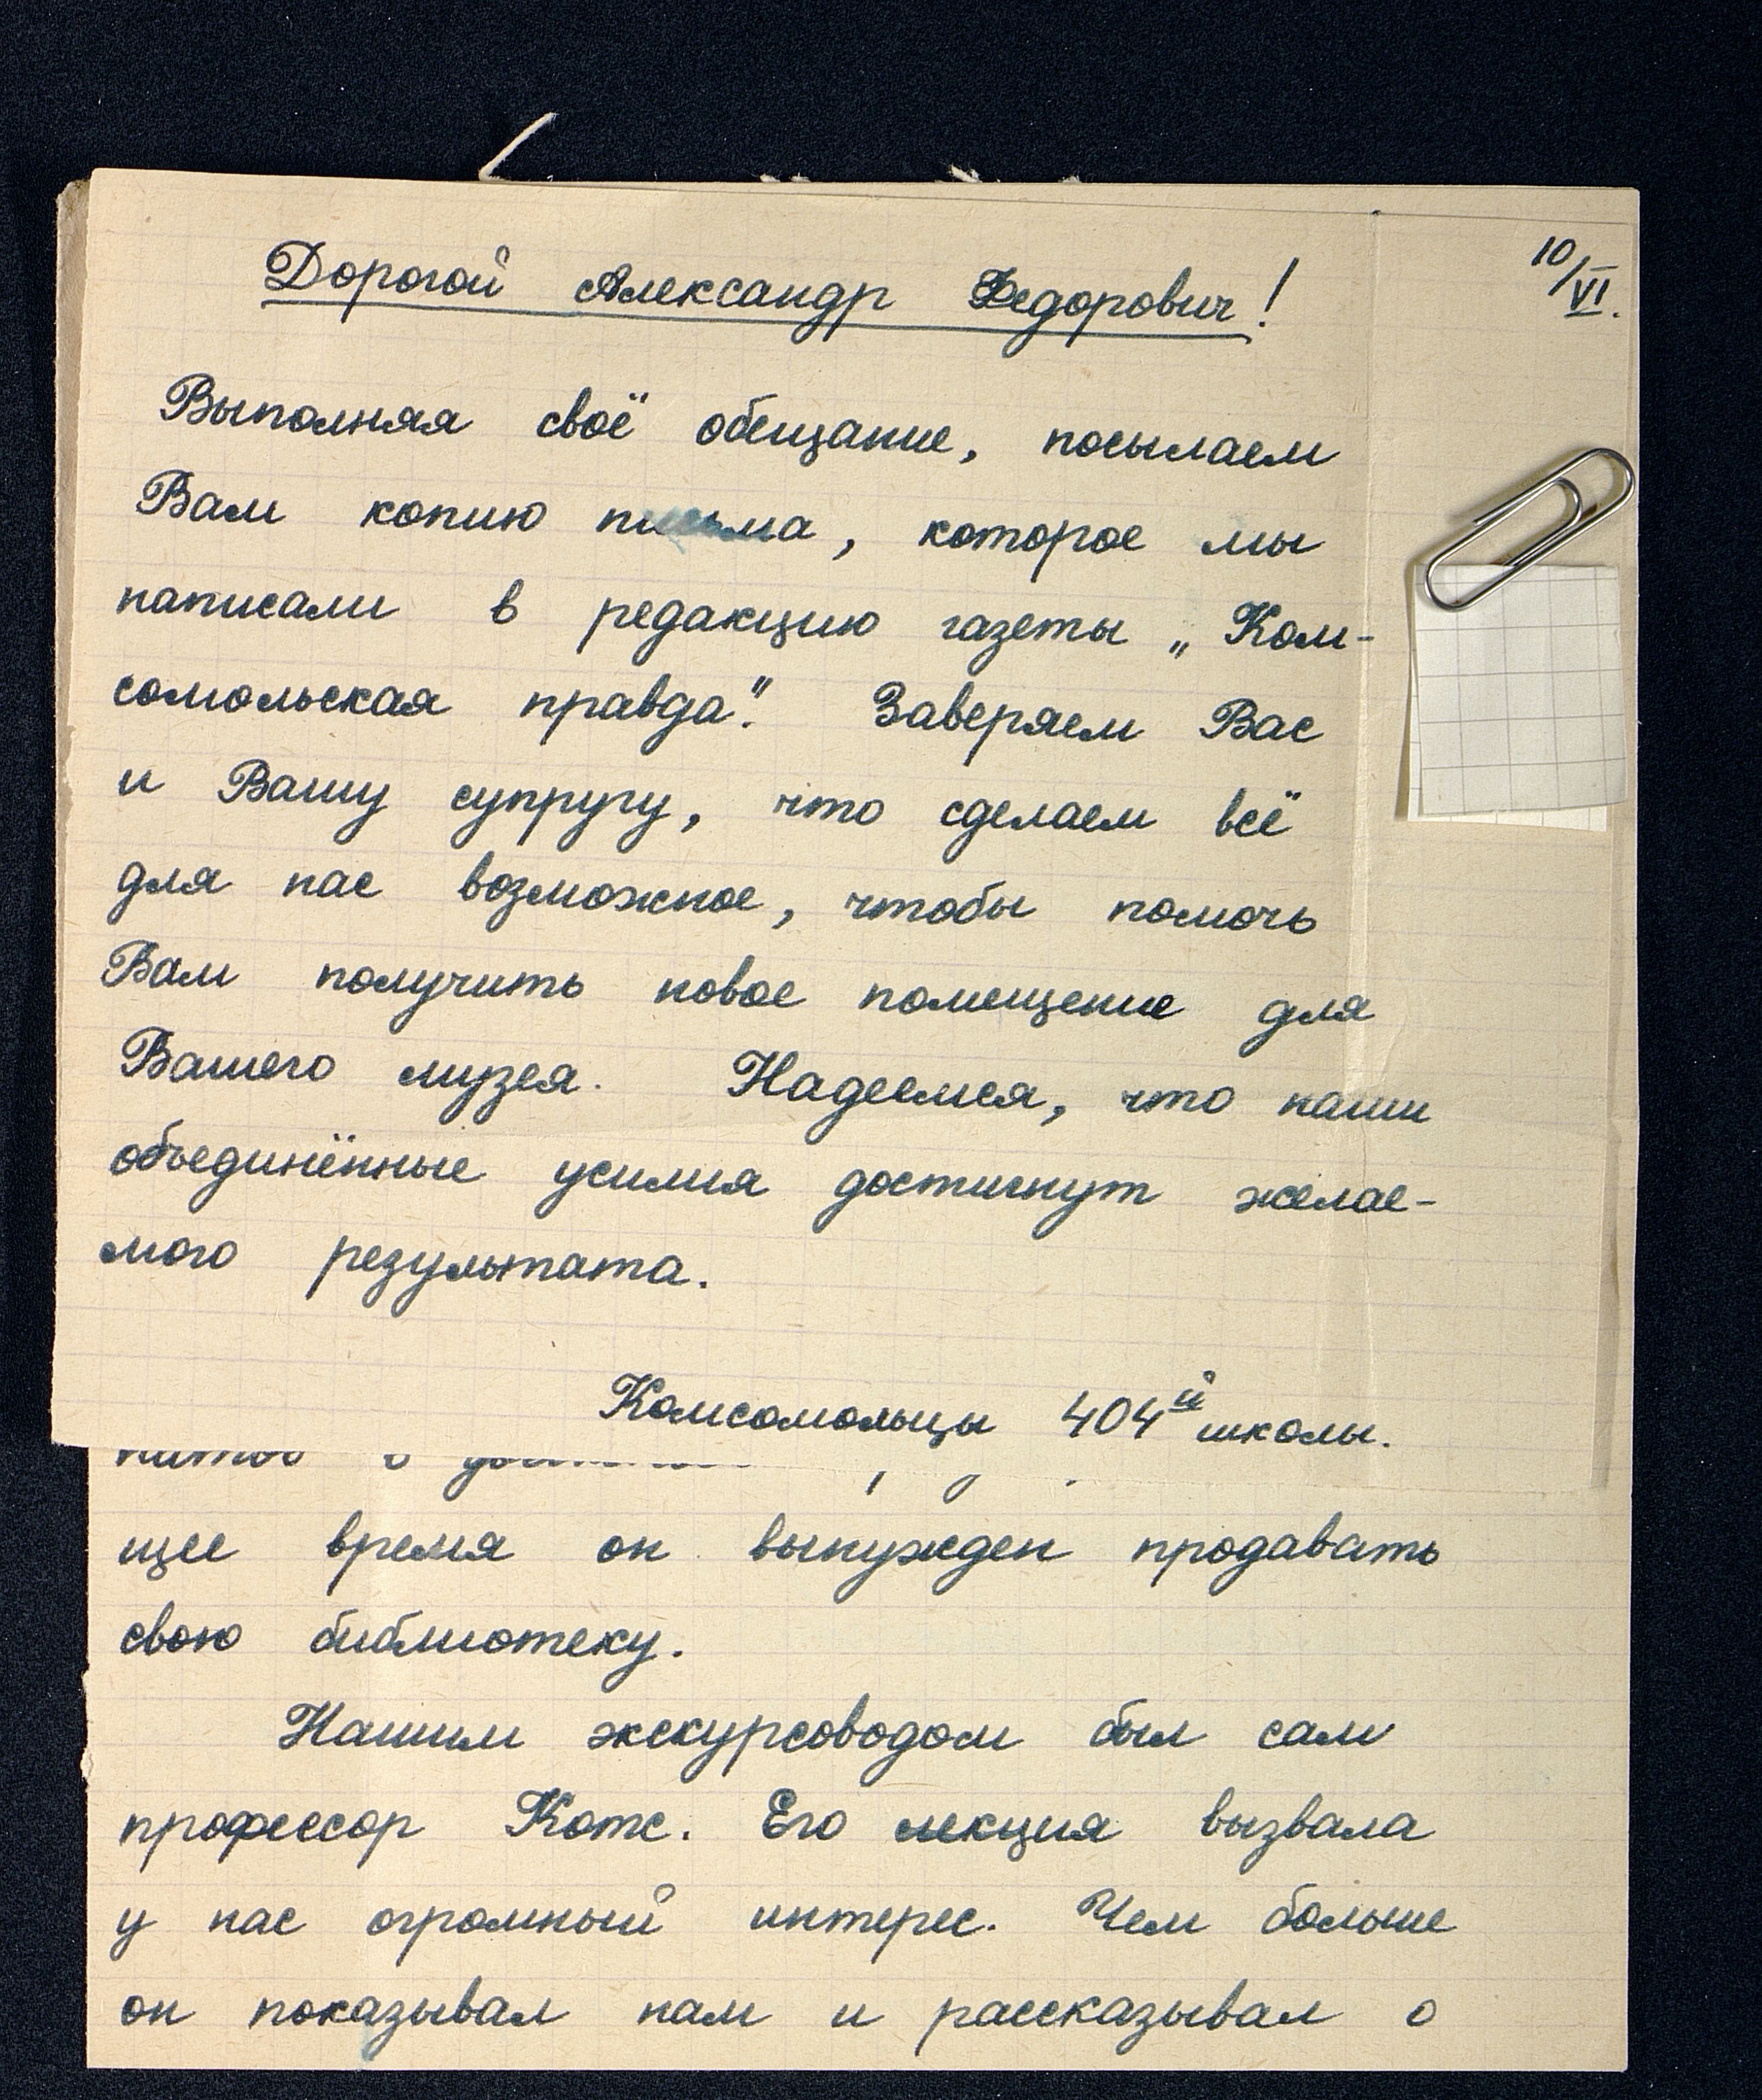 10/VI.
Дорогой Александр Федорович!
Выполняя своё обещание, посылаем
Вам копию письма, которое мы
написали в редакцию газеты „Ком-
сомольская правда". Заверяем Вас
и Вашу супругу, что сделаем всё
для нас возможное, чтобы помочь
Вам получить новое помещение для
Вашего музея. Надеемся, что наши
объединённые усилия достигнут желае-
мого результата.
Комсомольцы 404й школы.
щее время он вынужден продавать
свою библиотеку.
Нашим экскурсоводом был сам
профессор Котс. Его лекция вызвала
у нас огромный интерес. Чем больше
он показывал нам и рассказывал о